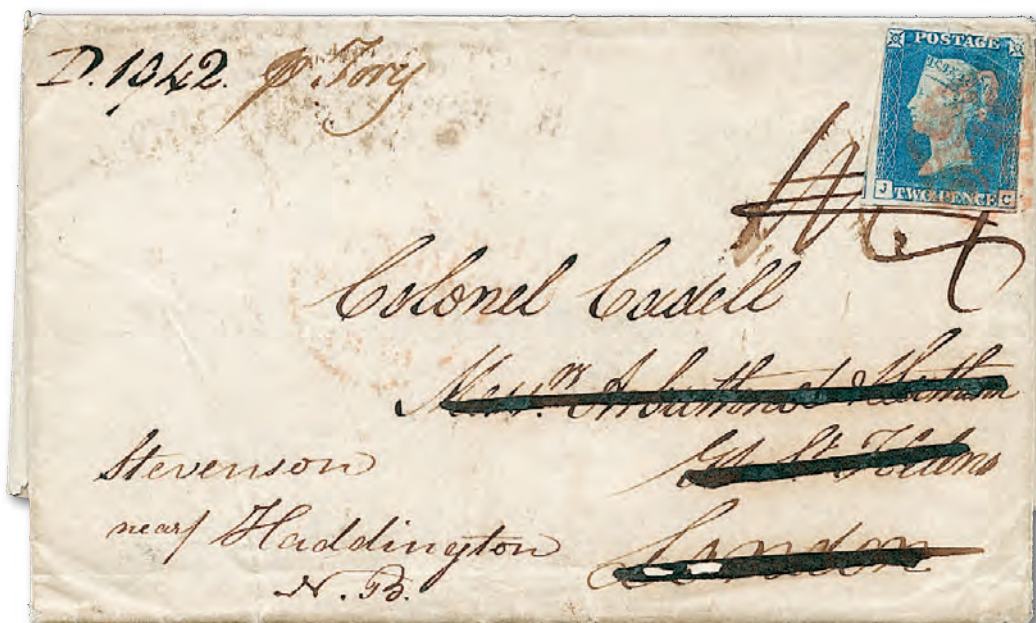 D. 1942. p Tory
POSTAGE
J TWO PENCE C
Colonel Cadell
Messrs. Arbuthnot Latham
Gt. St. Helens
London
Stevenson
near Haddington
N. B.